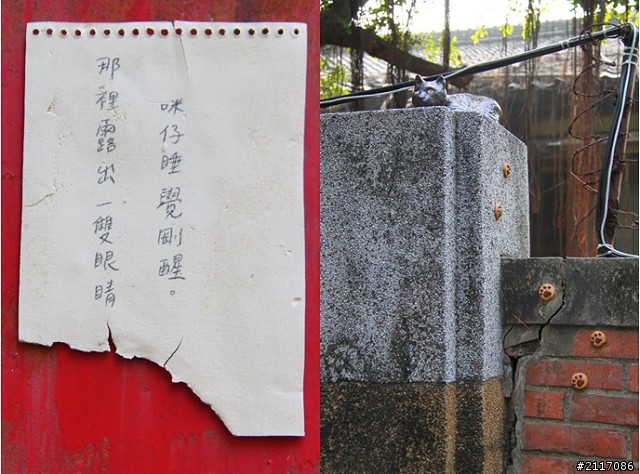 咪仔睡覺剛醒。
那裡露出一雙眼睛
#2117086